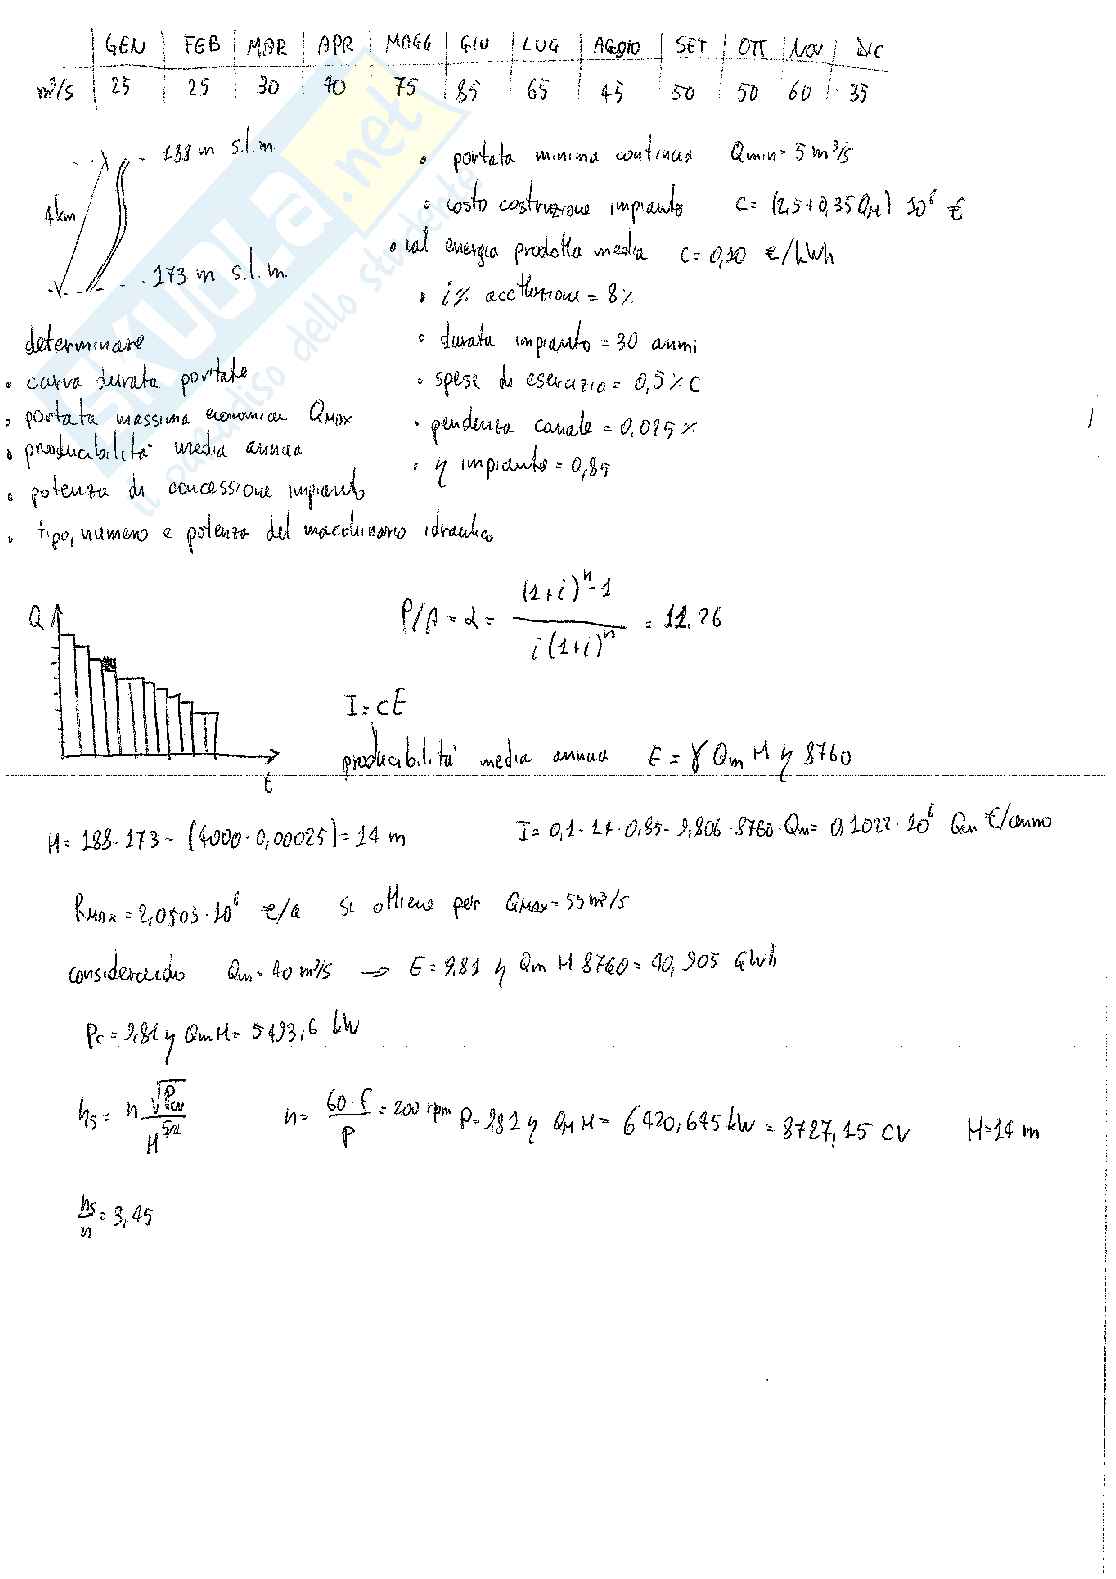 GEN FEB MAR APR MAGG GIU LUG AGOSTO SET OTT NOV DIC
m³/s 25 25 30 40 75 85 65 45 50 50 60 35
188 m s.l.m.
4km
173 m s.l.m.
• portata minima continua Qmin = 5 m³/s
• costo costruzione impianto C = (2,5+0,35 QM) 10⁶ €
• val energia prodotta media c = 0,10 €/kWh
• i% = 8%
• durata impianto = 30 anni
• spese di esercizio = 0,5% C
• pendenza canale = 0,025%
• η impianto = 0,85
determinare
• curva durata portate
• portata massima economica QMAX
• producibilità media annua
• potenza di concessione impianto
• tipo, numero e potenza del macchinario idraulico
Q
t
P/A = α = (1+i)ⁿ-1 / i(1+i)ⁿ = 11.26
I = cE
producibilità media annua E = γ Qm H η 8760
H = 188-173-(4000·0,00025) = 14 m
I = 0,1·14·0,85·9,806·8760·Qm = 0,1022·10⁶ Qm €/anno
RMAX = 2,0503·10⁶ €/a si ottiene per QMAX = 55 m³/s
considerando Qm = 40 m³/s → E = 9,81 η Qm H 8760 = 40,905 GWh
Pc = 9,81 η Qm H = 5493,6 kW
ns = n √Pcv / H^5/4
n = 60·f / P = 200 rpm P = 9,81 η QM H = 6420,645 kW = 8727,15 CV H = 14 m
ns/n = 3,45
SKUOLA.net
il paradiso dello studente